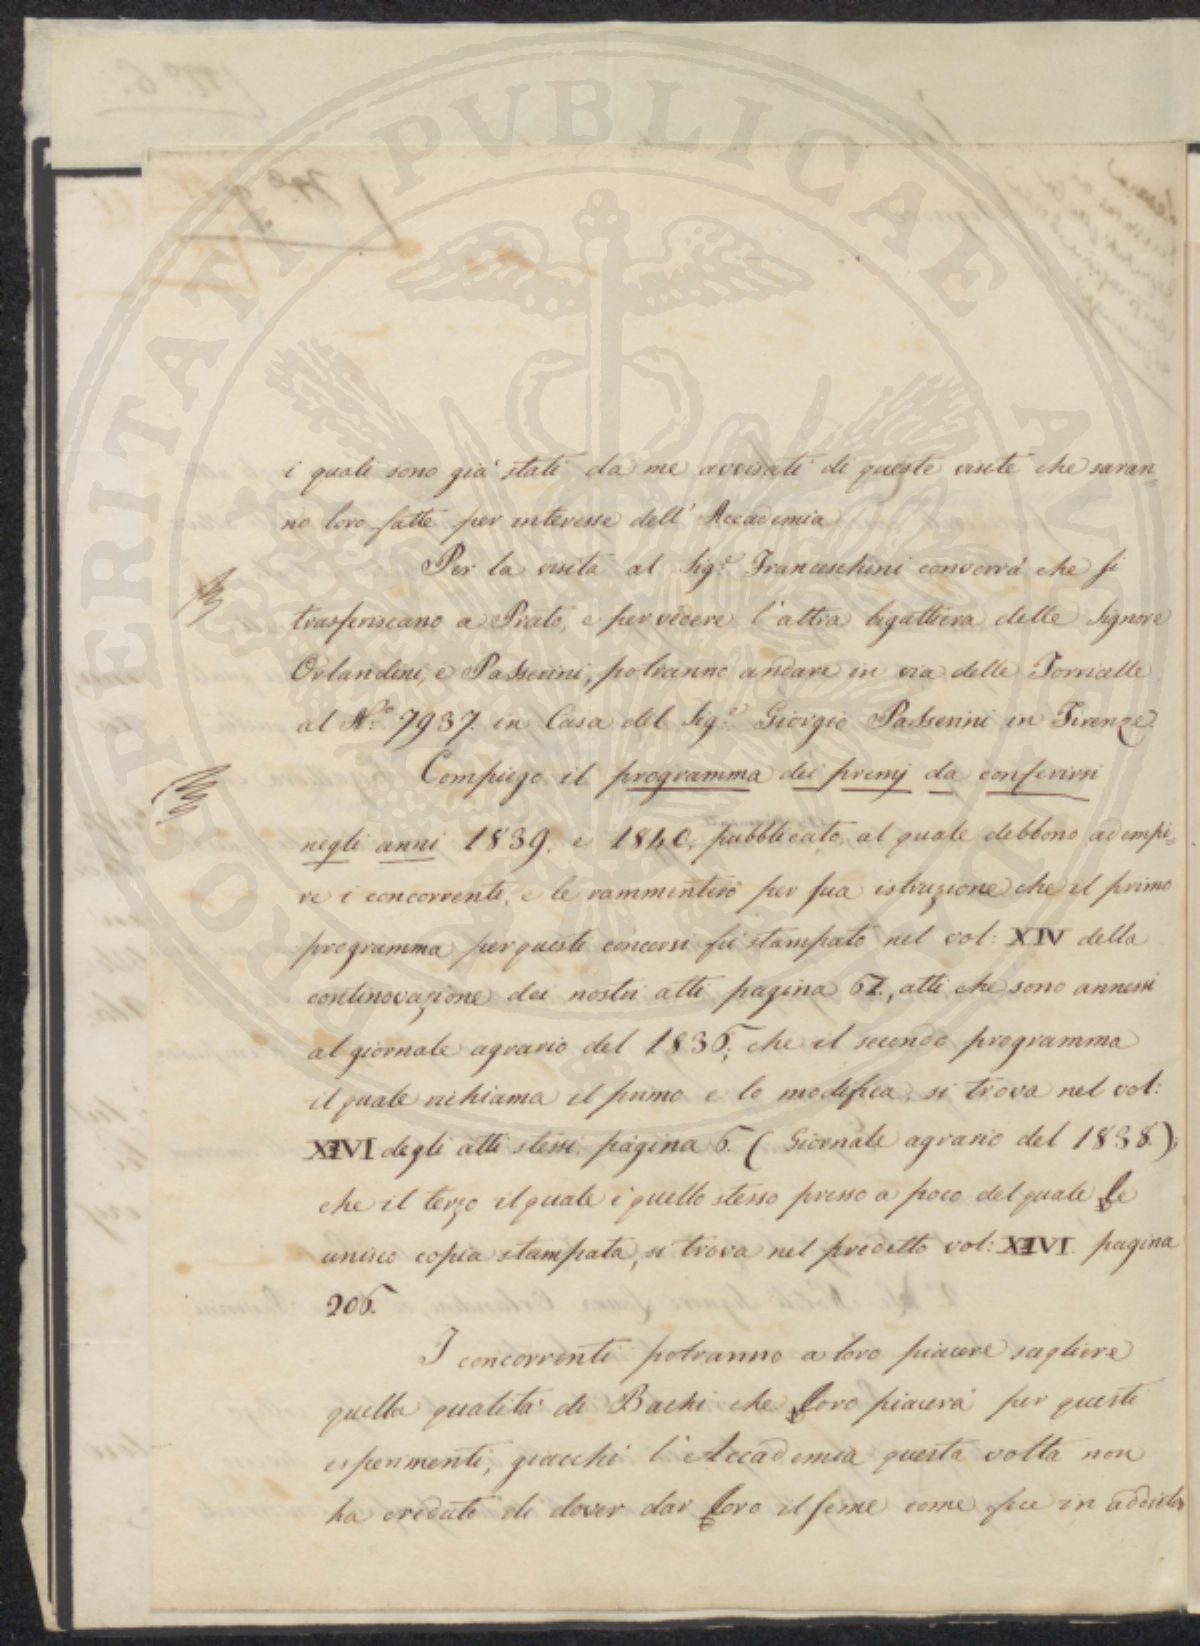 PROSPERITATI PVBLICAE AVGENDAE
i quali sono già stati da me avvisati di queste visite che saran-
no loro fatte per interesse dell' Accademia
Per la visita al Sig.e Franceschini converrà che si
trasferiscano a Prato, e per vedere l'altra bigattiera delle Signore
Orlandini, e Passerini, potranno andare in via delle Torricelle
al N.o 7937. in Casa del Sig.e Giorgio Passerini in Firenze.
Compiego il programma dei premj da conferirsi
negli anni 1839. e 1840. pubblicato, al quale debbono adempi-
re i concorrenti, e le rammenterò per sua istruzione che il primo
programma per questi concorsi fu stampato nel vol: XIV della
continovazione dei nostri atti pagina 67., atti che sono annessi
al giornale agrario del 1836; che il secondo programma
il quale richiama il primo e lo modifica, si trova nel vol:
XVI degli atti stessi pagina 6. ( Giornale agrario del 1838.);
che il terzo il quale è quello stesso presso a poco del quale Le
unisco copia stampata, si trova nel predetto vol: XVI pagina
206.
I concorrenti potranno a loro piacere sagliere
quella qualità di Bachi che Loro piacerà per questi
esperimenti, giacchè l'Accademia questa volta non
ha creduto di dover dar Loro il seme come fece in addietro